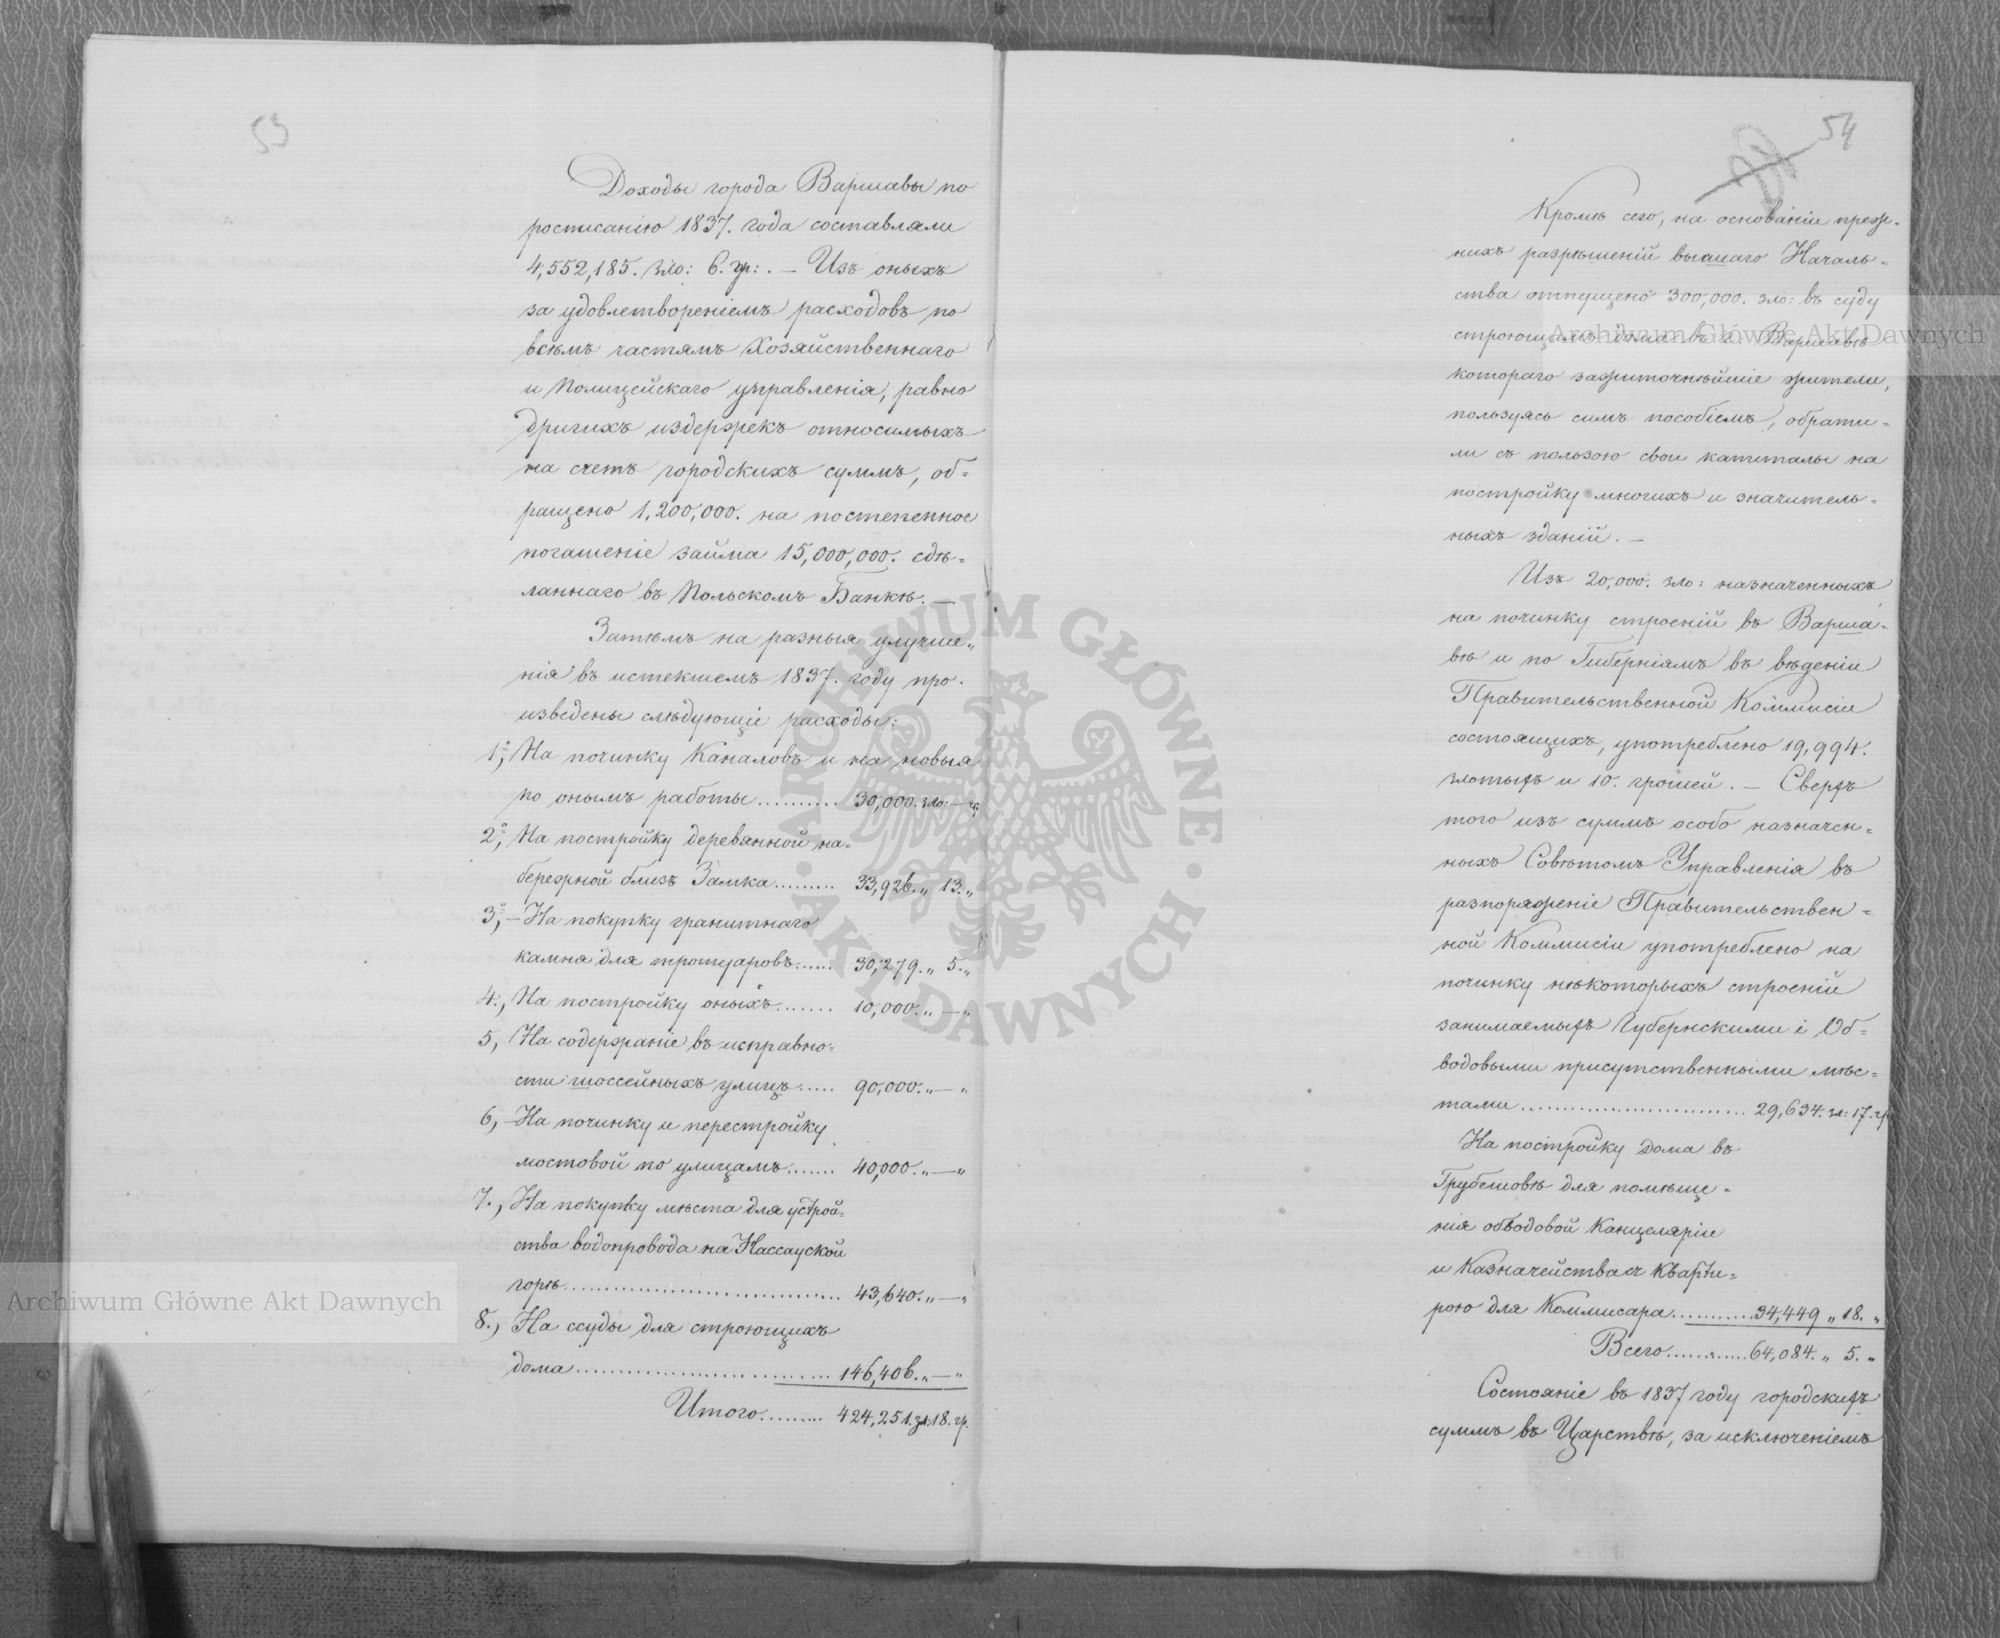 53
Доходы города Варшавы по
росписанію 1837. года составляли
4,552,185. зло: 6. гр: . — Изъ оныхъ
за удовлетвореніемъ расходовъ по
всѣмъ частямъ Хозяйственнаго
и Полицейскаго управленія, равно
другихъ издержекъ относимыхъ
на счетъ городскихъ суммъ, об=
ращено 1,200,000. на постепенное
погашеніе займа 15,000,000. сдѣ=
ланнаго въ Польскомъ Банкѣ. —
Затѣмъ на разныя улучше„
нія въ истекшемъ 1837. году про.
изведены слѣдующіе расходы:
1, На починку Каналовъ и на новыя
по онымъ работы .......... 30,000. зло: — гр:
2, На постройку деревянной на=
бережной близъ Замка ......... 33,926. „ 13. „
3, — На покупку гранитнаго
камня для тротуаровъ ...... 30,279. „ 5. „
4., На постройку оныхъ ....... 10,000. „ — „
5, На содержаніе въ исправно=
сти шоссейныхъ улицъ ..... 90,000. „ — „
6, На починку и перестройку
мостовой по улицамъ ....... 40,000. „ — „
7., На покупку мѣста для устрой=
ства водопровода на Нассауской
горѣ .............................. 43,640. „ — „
8., На ссуды для строющихъ
дома ............................ 146,406. „ — „
Итого ......... 424,251. зл. 18. гр.
54
Кромѣ сего, на основаніи преж=
нихъ разрѣшеній высшаго Началь=
ства отпущено 300,000. зло: въ суду
строющимъ дома въ г. Варшавѣ
котораго зажиточнѣйшіе жители,
пользуясь симъ пособіемъ, обрати=
ли съ пользою свои капиталы на
постройку многихъ и значитель=
ныхъ зданій. —
Изъ 20,000. зло: назначенныхъ
на починку строеній въ Варша=
вѣ и по Губерніямъ въ вѣденіи
Правительственной Коммисіи
состоящихъ, употреблено 19,994.
злотыхъ и 10. грошей. — Сверхъ
того изъ суммъ особо назначен=
ныхъ Совѣтомъ Управленія въ
разпоряженіе Правительствен=
ной Коммисіи употреблено на
починку нѣкоторыхъ строеній
занимаемыхъ Губернскими і Об=
водовыми присутственными мѣс=
тами ........................... 29,634. зл: 17. гр
На постройку дома въ
Грубешовѣ для помѣще=
нія обводовой Канцеляріи
и Казначейства съ Кварти=
рою для Коммисара ........... 34,449 „ 18. „
Всего ............ 64,084. „ 5. „
Состояніе въ 1837 году городскихъ
суммъ въ Царствѣ, за исключеніемъ
Archiwum Główne Akt Dawnych
Archiwum Główne Akt Dawnych
ARCHIWUM GŁÓWNE · AKT DAWNYCH ·